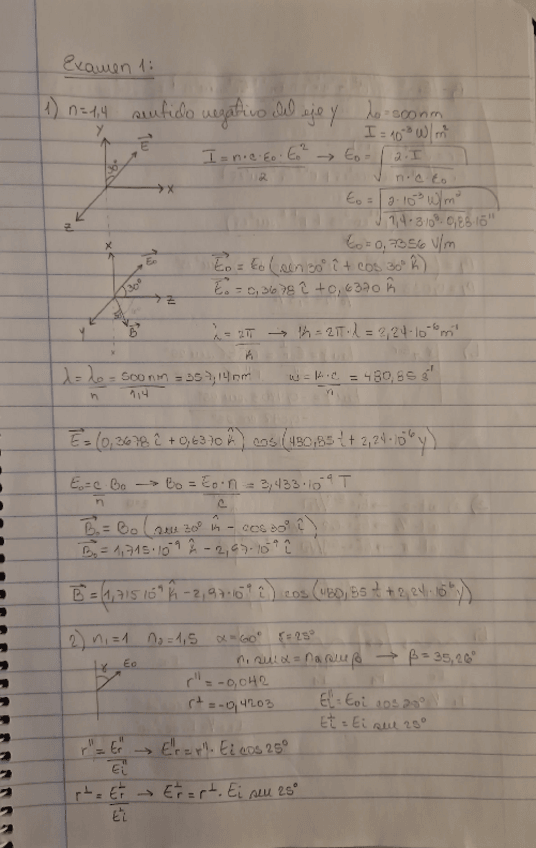 Examen 1:
1) n=1,4 sentido negativo del eje y λ₀=500nm
I=10⁻³ W/m²
y E 30° x z
I = n·c·ε₀·E₀²/2 → E₀ = √(2·I/(n·c·ε₀))
E₀ = √(2·10⁻³ W/m²/(1,4·3·10⁸·0,88·10⁻¹¹))
E₀=0,7356 V/m
x E₀ 30° z y B
E₀ = E₀(sen30° î + cos 30° k̂)
E₀ = 0,3678 î + 0,6370 k̂
λ = 2π/k → k = 2π·λ = 2,24·10⁻⁶ m⁻¹
λ = λ₀/n = 500nm/1,4 = 357,14nm w = k·c/n = 480,85 s⁻¹
E = (0,3678 î + 0,6370 k̂) cos(480,85t + 2,24·10⁻⁶ y)
E₀ = c/n B₀ → B₀ = E₀·n/c = 3,433·10⁻⁹ T
B₀ = B₀ (sen 30° k̂ - cos 30° î)
B₀ = 1,715·10⁻⁹ k̂ - 2,97·10⁻⁹ î
B = (1,715 10⁻⁹ k̂ - 2,97·10⁻⁹ î) cos(480,85 t + 2,24·10⁻⁶ y)
2) n₁=1 n₂=1,5 α=60° γ=25°
n₁ senα = n₂ senβ → β = 35,26°
γ E₀
r" = -0,042
r⊥ = -0,4203
Ei" = E₀i cos 25°
Ei⊥ = Ei sen 25°
r" = Er"/Ei" → Er" = r"·Ei cos 25°
r⊥ = Er⊥/Ei⊥ → Er⊥ = r⊥·Ei sen 25°